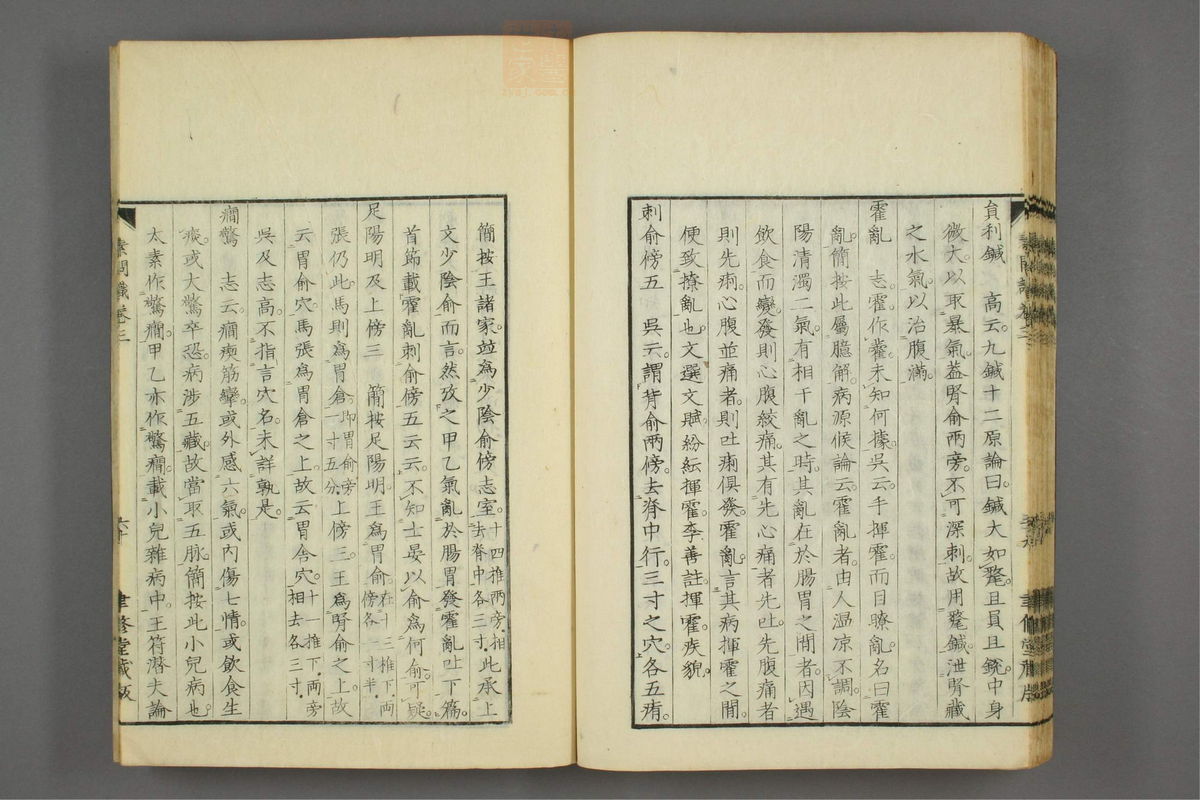 員利鍼　高云。九鍼十二原論曰。鍼大如氂。且員且銳。中身
微大。以取暴氣。蓋腎俞兩旁。不可深刺。故用氂鍼。泄腎藏
之水氣。以治腹滿。
霍亂　志霍作癨。未知何據。吳云。手揮霍而目瞭亂。名曰霍
亂。簡按此屬臆解。病源候論云。霍亂者。由人溫涼不調。陰
陽清濁二氣。有相干亂之時。其亂在於腸胃之間者。因遇
飲食而變。發則心腹絞痛。其有先心痛者先吐。先腹痛者
則先痢。心腹並痛者。則吐痢俱發。霍亂。言其病揮霍之間。
便致撩亂也。文選文賦。紛紜揮霍。李善註。揮霍。疾貌。
刺俞傍五　吳云。謂背俞兩傍。去脊中行三寸之穴。各五痏。
簡按王諸家。竝爲少陰俞傍志室。十四推兩旁相去脊中各三寸。此承上
文少陰俞而言。然攷之甲乙氣亂於腸胃發霍亂吐下篇。
首節載霍亂刺俞傍五云云。不知士晏以俞爲何俞。可疑。
足陽明及上傍三　簡按足陽明。王爲胃俞。在十三推下。兩傍各一寸半。
張仍此。馬則爲胃倉。卽胃俞旁一寸五分。上傍三。王爲腎俞之上。故
云胃俞穴。馬張爲胃倉之上。故云胃舍穴。十一推下。兩旁相去各三寸。
吳及志高。不指言穴名。未詳孰是。
癇驚　志云。癇瘈筋攣。或外感六氣。或內傷七情。或飮食生
痰。或大驚卒恐。病涉五藏。故當取五脉。簡按此小兒病也。
太素作驚癇。甲乙亦作驚癇。載小兒雜病中。王符潛夫論
素問識卷三
六十
聿修堂藏版